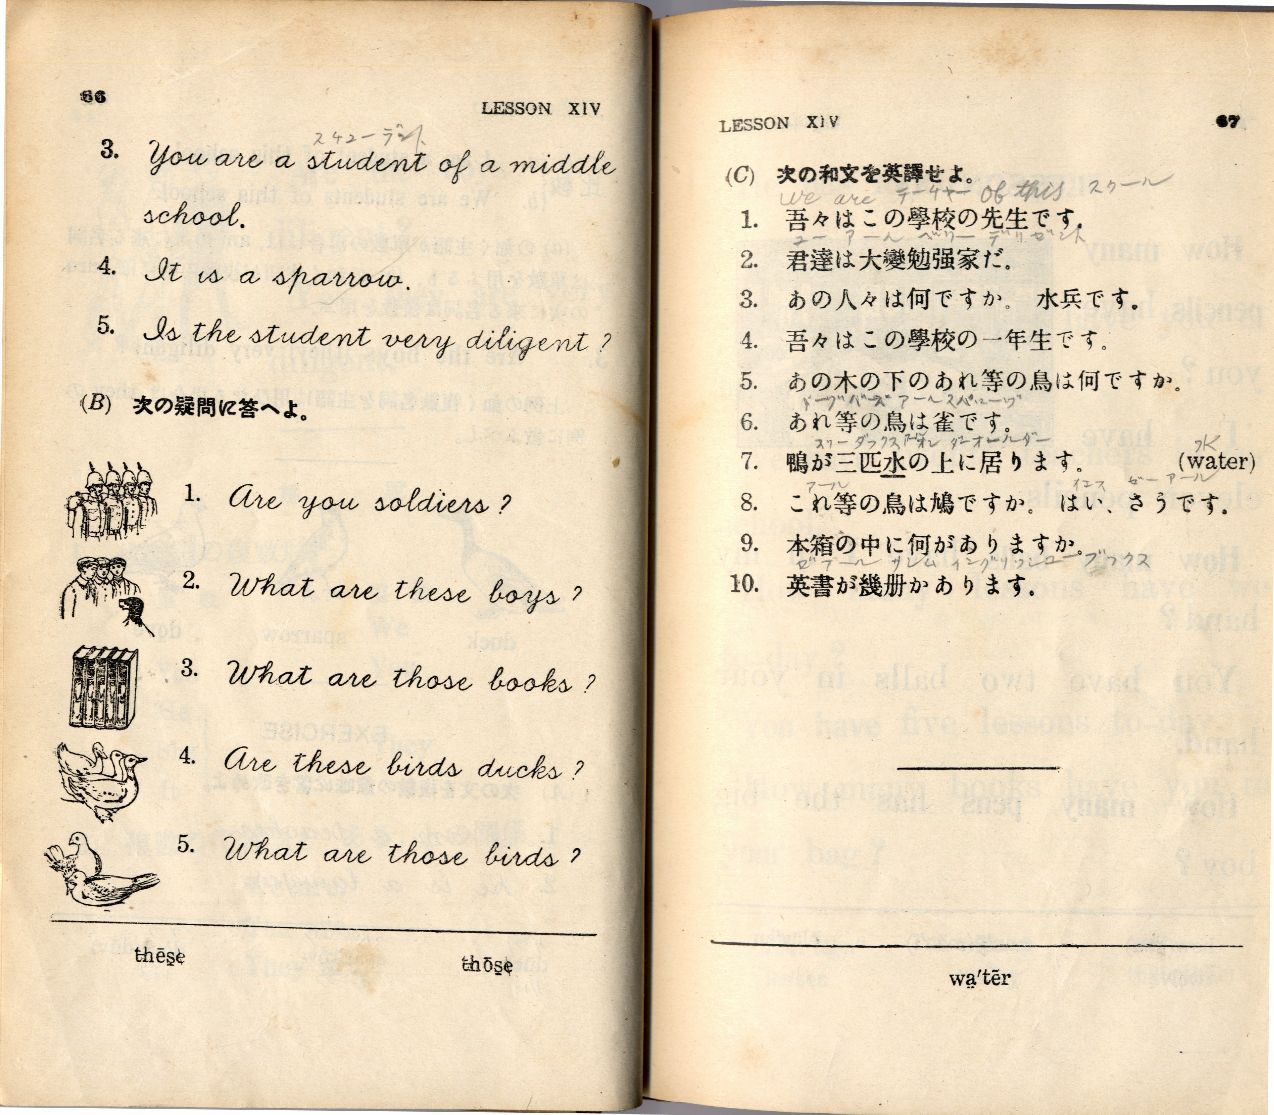 66
LESSON XIV
スチューデント
3. You are a student of a middle
school.
4. It is a sparrow.
5. Is the student very diligent?
(B) 次の疑問に答へよ。
1. Are you soldiers?
2. What are these boys?
3. What are those books?
4. Are these birds ducks?
5. What are those birds?
thēṣe
thōṣe
LESSON XIV
67
(C) 次の和文を英譯せよ。
we are テーチャー Of this スクール
1. 吾々はこの學校の先生です。
ユー アール ベリー デリゼント
2. 君達は大變勉强家だ。
3. あの人々は何ですか。 水兵です。
4. 吾々はこの學校の一年生です。
5. あの木の下のあれ等の鳥は何ですか。
6. あれ等の鳥は雀です。
水
7. 鴨が三匹水の上に居ります。 (water)
アール ゼー アール
8. これ等の鳥は鳩ですか。 はい、さうです。
9. 本箱の中に何がありますか。
ブックス
10. 英書が幾册かあります。
wa̤′tẽr